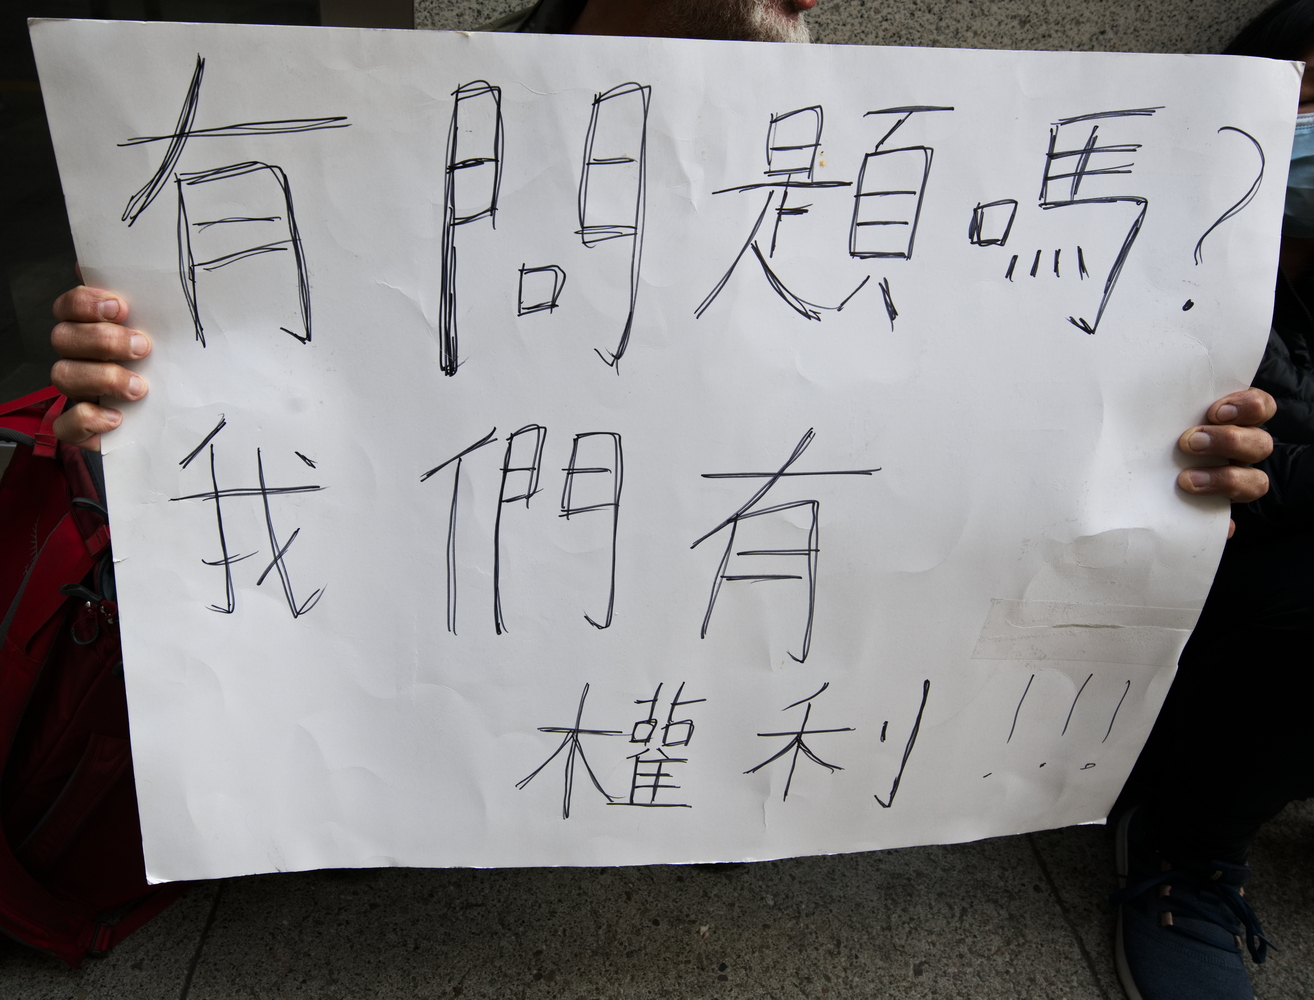 有問題嗎?
我們有
權利!!!